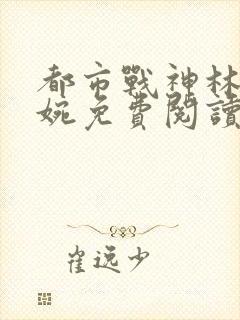 都市戰神林
婉免費閱讀
崔遠少